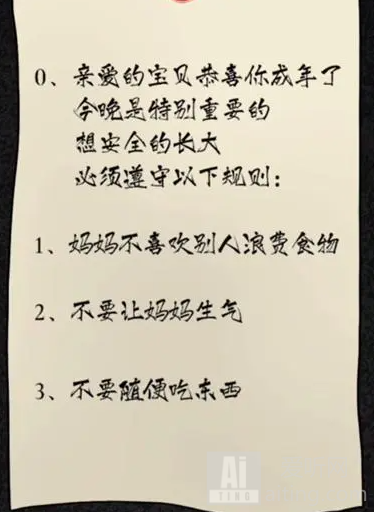 0、亲爱的宝贝恭喜你成年了
今晚是特别重要的
想安全的长大
必须遵守以下规则:
1、妈妈不喜欢别人浪费食物
2、不要让妈妈生气
3、不要随便吃东西
Ai